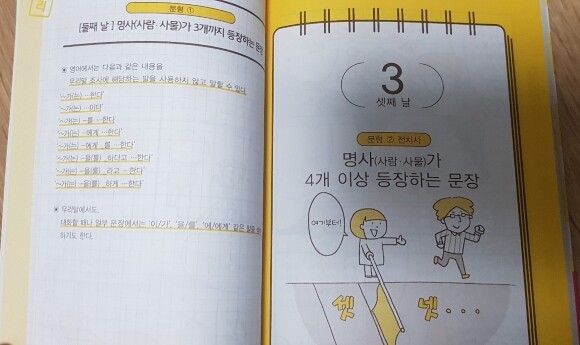 리
문형 ①
[둘째 날] 명사(사람·사물)가 3개까지 등장하는 문장
※ 영어에서는 다음과 같은 내용을
우리말 조사에 해당하는 말을 사용하지 않고 말할 수 있다.
'~가(는) …한다'
'~가(는) …이다'
'~가(는) ~를 …한다'
'~가(는) ~에게 …한다'
'~가(는) ~에게 _를 …한다'
'~가(는) ~을(를) _하다고 …한다'
'~가(는) ~을(를) _라고 …한다'
'~가(는) ~을(를) _하게 …한다'
※ 우리말에서도,
대화할 때나 일부 문장에서는 '이/가', '을/를', '에/에게' 같은 말을
하기도 한다.
3
셋째 날
문형 ② 전치사
명사(사람·사물)가
4개 이상 등장하는 문장
여기부터!
셋 넷···